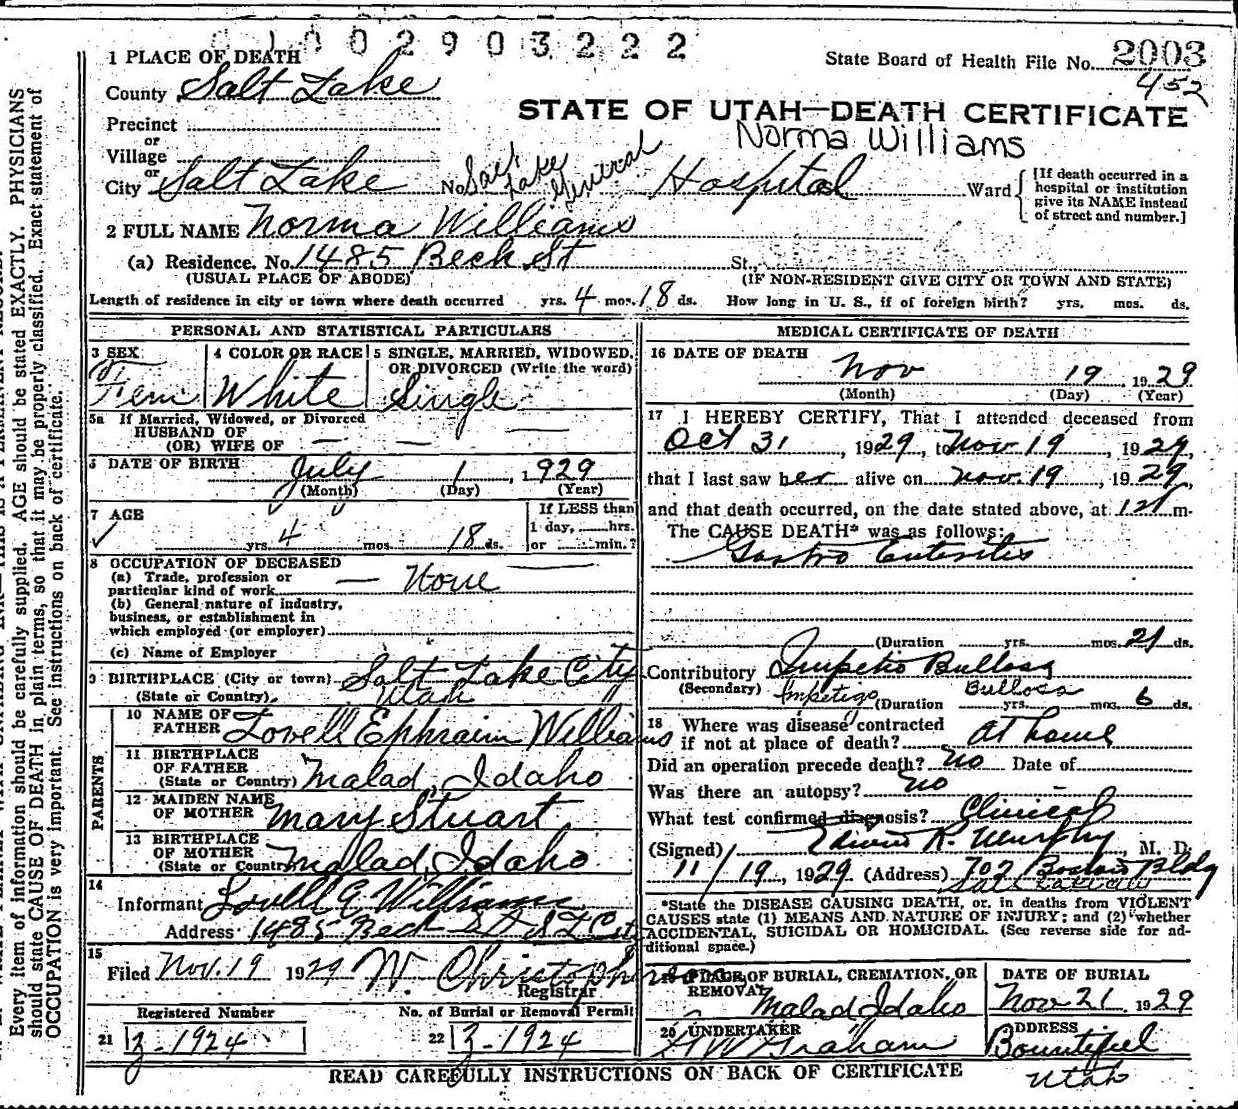 1002903222
State Board of Health File No. 2003
452
1 PLACE OF DEATH
County Salt Lake
STATE OF UTAH—DEATH CERTIFICATE
Precinct
or
Village
Norma Williams
or
City Salt Lake No. Salt Lake General Hospital Ward
[If death occurred in a
hospital or institution
give its NAME instead
of street and number.]
2 FULL NAME Norma Williams
(a) Residence. No. 1485 Beck St St.,
(USUAL PLACE OF ABODE) (IF NON-RESIDENT GIVE CITY OR TOWN AND STATE)
Length of residence in city or town where death occurred yrs. 4 mos. 18 ds. How long in U. S., if of foreign birth? yrs. mos. ds.
PERSONAL AND STATISTICAL PARTICULARS
3 SEX Fem
4 COLOR OR RACE White
5 SINGLE, MARRIED, WIDOWED,
OR DIVORCED (Write the word)
Single
5a If Married, Widowed, or Divorced
HUSBAND OF
(OR) WIFE OF
6 DATE OF BIRTH July 1, 1929
(Month) (Day) (Year)
7 AGE
yrs. 4 mos. 18 ds.
If LESS than
1 day, hrs.
or min.?
8 OCCUPATION OF DECEASED
(a) Trade, profession or
particular kind of work None
(b) General nature of industry,
business, or establishment in
which employed (or employer)
(c) Name of Employer
9 BIRTHPLACE (City or town) Salt Lake City
(State or Country) Utah
PARENTS
10 NAME OF
FATHER Lovell Ephraim Williams
11 BIRTHPLACE
OF FATHER
(State or Country) Malad, Idaho
12 MAIDEN NAME
OF MOTHER Mary Stuart
13 BIRTHPLACE
OF MOTHER
(State or Country) Malad, Idaho
14
Informant Lovell E. Williams
Address 1485 Beck St S L City
15
Filed Nov. 19 1929 W. Christopherson
Registrar
Registered Number No. of Burial or Removal Permit
21 Z-1924 22 Z-1924
MEDICAL CERTIFICATE OF DEATH
16 DATE OF DEATH
Nov 19 1929
(Month) (Day) (Year)
17 I HEREBY CERTIFY, That I attended deceased from
Oct 31, 1929, to Nov. 19, 1929,
that I last saw her alive on Nov. 19, 1929,
and that death occurred, on the date stated above, at m.
The CAUSE DEATH* was as follows:
Gastro Enteritis
(Duration yrs. mos. 21 ds.
Contributory Impetio Bullosa
(Secondary) Impetigo Bullosa
(Duration yrs. mos. 6 ds.
18 Where was disease contracted
if not at place of death? At home
Did an operation precede death? no Date of
Was there an autopsy? no
What test confirmed diagnosis? Clinical
(Signed) Edwin R. Murphy, M. D.
11/19, 1929 (Address) 702 Boston Bldg
Salt Lake City
*State the DISEASE CAUSING DEATH, or, in deaths from VIOLENT
CAUSES state (1) MEANS AND NATURE OF INJURY; and (2) whether
ACCIDENTAL, SUICIDAL OR HOMICIDAL. (See reverse side for ad-
ditional space.)
19 PLACE OF BURIAL, CREMATION, OR
REMOVAL
Malad, Idaho
DATE OF BURIAL
Nov 21 1929
20 UNDERTAKER
Graham
ADDRESS
Bountiful
Utah
READ CAREFULLY INSTRUCTIONS ON BACK OF CERTIFICATE
Every item of information should be carefully supplied. AGE should be stated EXACTLY. PHYSICIANS
should state CAUSE OF DEATH in plain terms, so that it may be properly classified. Exact statement of
OCCUPATION is very important. See instructions on back of certificate.